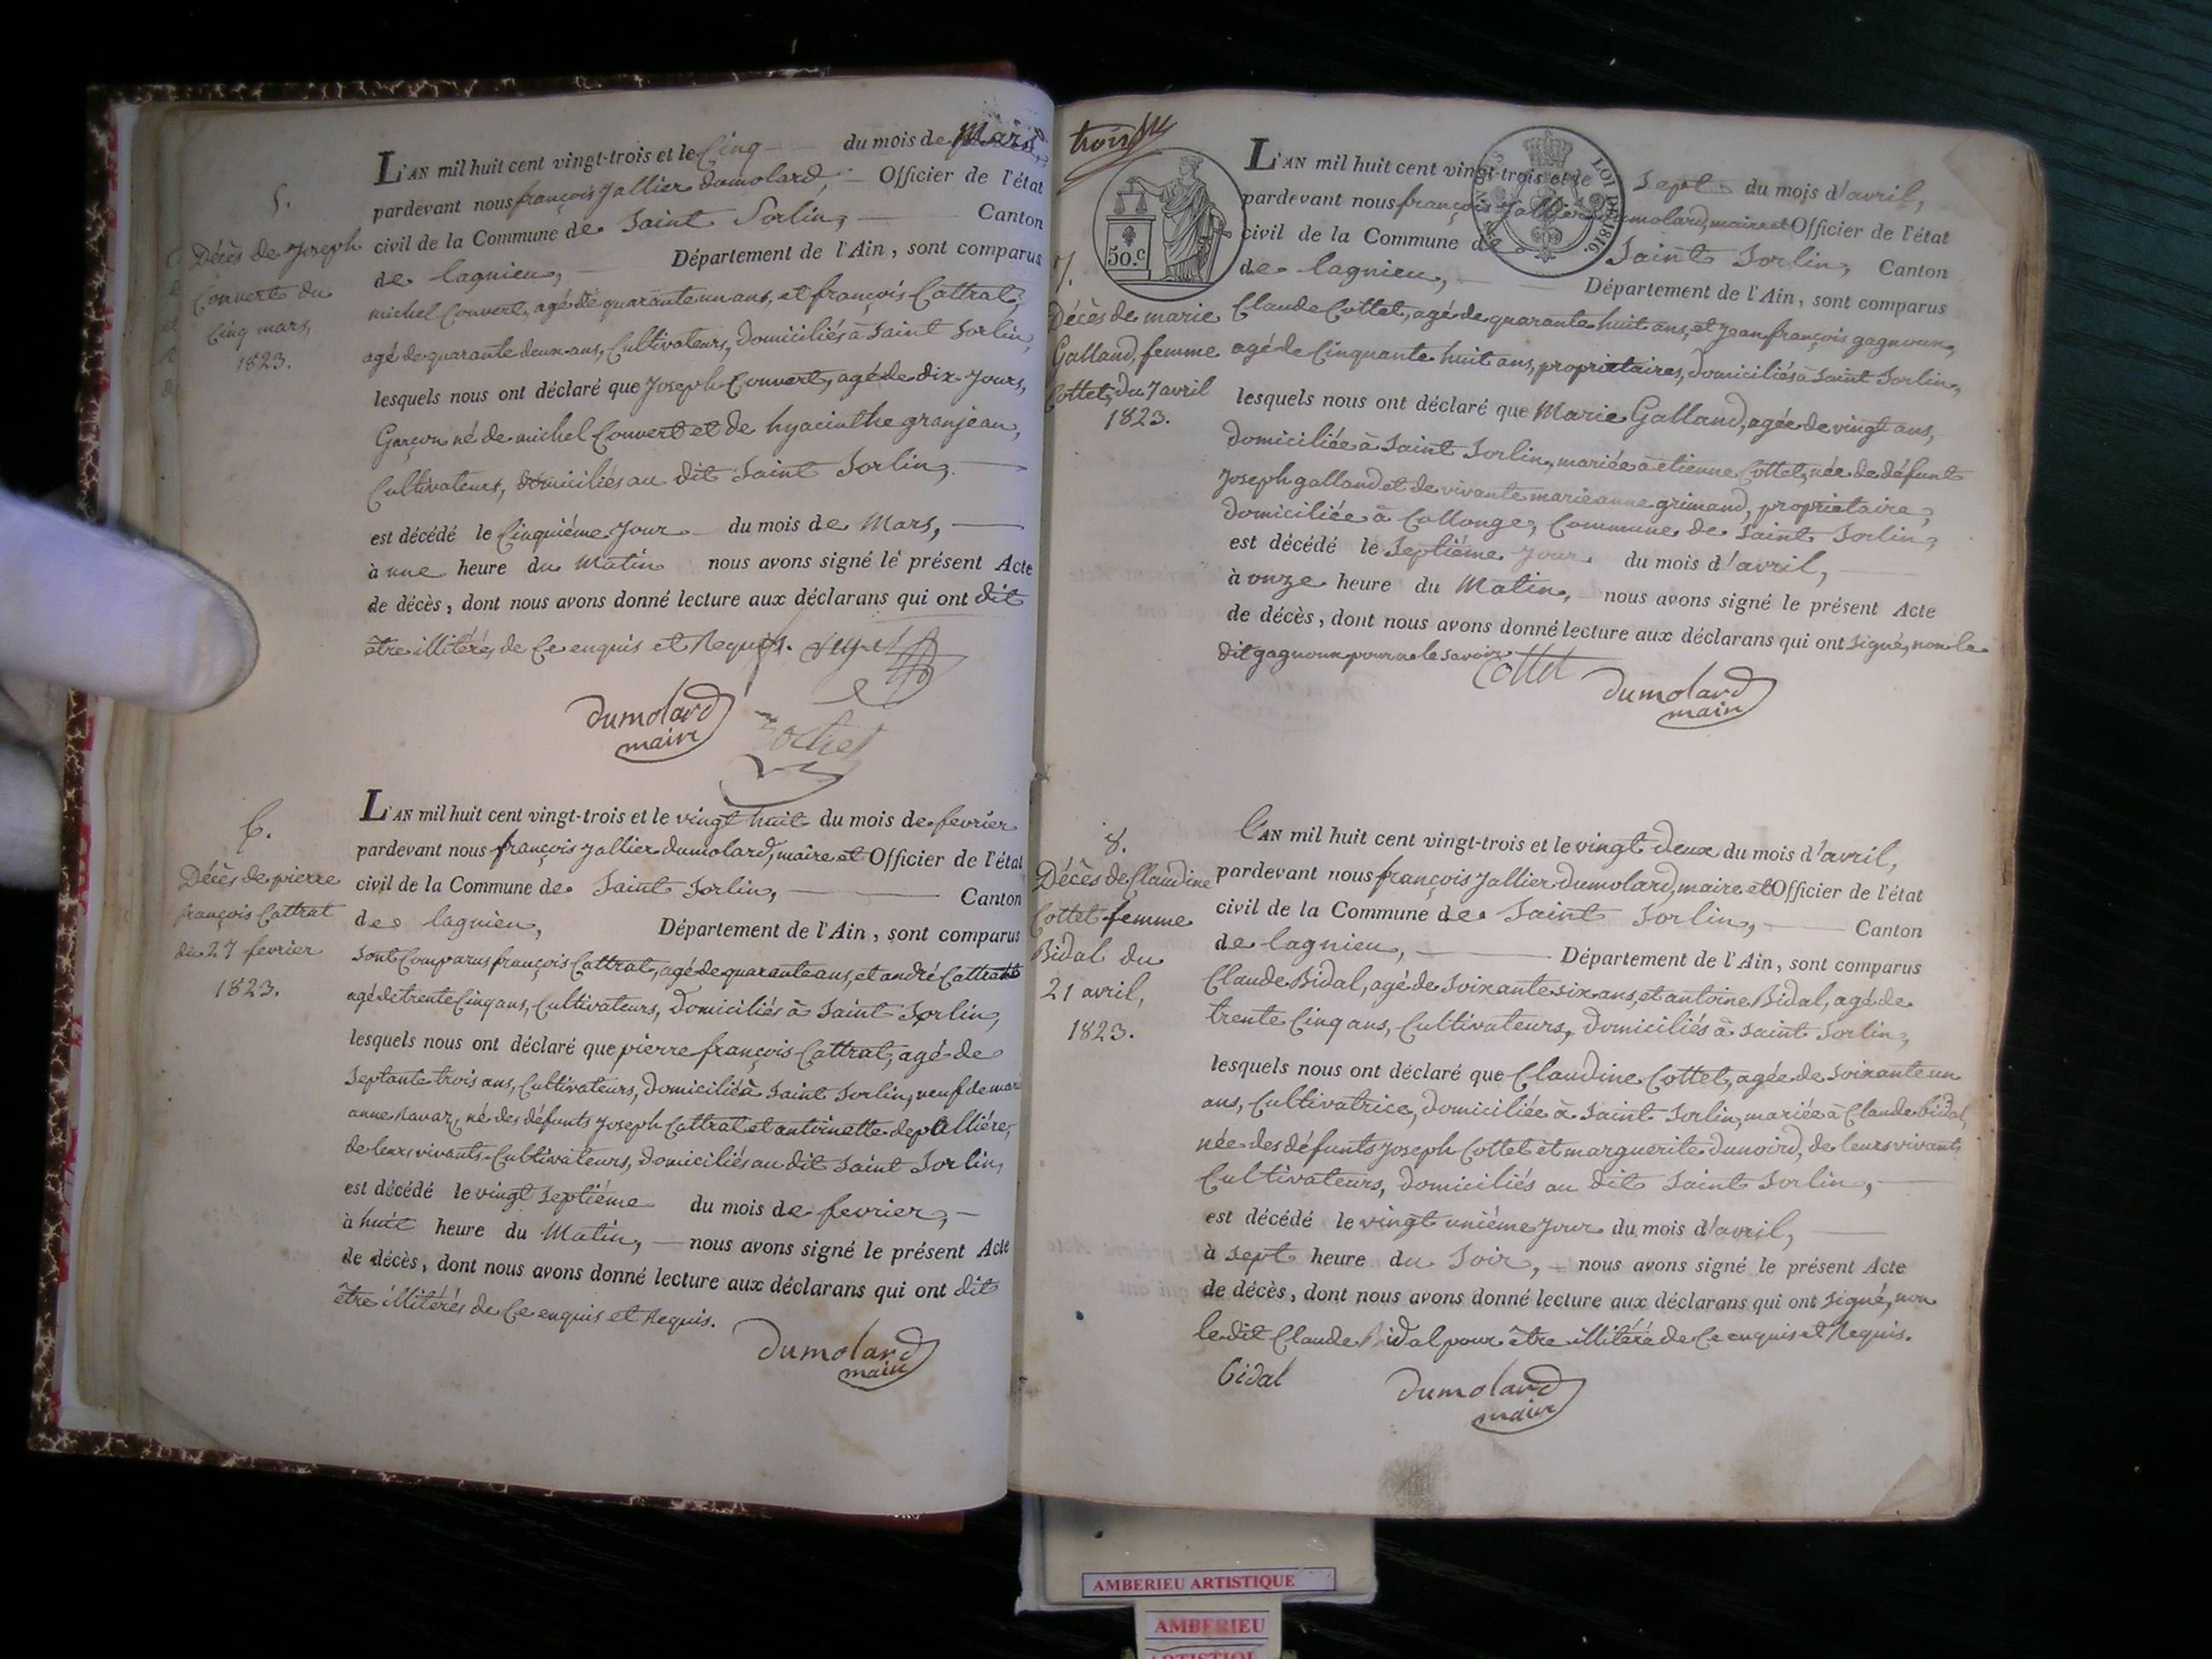 5.
Décès de Joseph
Convert du
Cinq mars,
1823.
L'AN mil huit cent vingt-trois et le Cinq du mois de Mars,
pardevant nous françois Jallier dumolard, Officier de l'état
civil de la Commune de Saint Sorlin, Canton
de lagnieu, Département de l'Ain, sont comparus
michel Convert, agé de quarante un ans, et françois Cattrat,
agé de quarante deux ans, Cultivateurs, domiciliés à Saint Sorlin,
lesquels nous ont déclaré que Joseph Convert, agé de dix Jours,
Garçon né de michel Convert et de hyacinthe granjean,
Cultivateurs, domiciliés au dit Saint Sorlin,
est décédé le Cinquiéme Jour du mois de Mars,
à une heure du Matin nous avons signé le présent Acte
de décès, dont nous avons donné lecture aux déclarans qui ont dit
être illitérés de Ce enquis et Requis.
Dumolard
maire
6.
Décès de pierre
françois Cattrat
du 27 fevrier
1823.
L'AN mil huit cent vingt-trois et le vingt huit du mois de fevrier
pardevant nous françois Jallier dumolard, maire et Officier de l'état
civil de la Commune de Saint Sorlin, Canton
de lagnieu, Département de l'Ain, sont comparus
sont Comparus françois Cattrat, agé de quarante ans, et andré Cattrat
agé de trente Cinq ans, Cultivateurs, domiciliés à Saint Sorlin,
lesquels nous ont déclaré que pierre françois Cattrat, agé de
Septante trois ans, Cultivateurs, domicilié à Saint Sorlin, veuf de marie
anne navaz, né des défunts Joseph Cattrat et antoinette depelliére,
de leurs vivants Cultivateurs, domiciliés au dit Saint Sorlin,
est décédé le vingt Septiéme du mois de fevrier,
à huit heure du Matin, nous avons signé le présent Acte
de décès, dont nous avons donné lecture aux déclarans qui ont dit
être illitérés de Ce enquis et Requis.
Dumolard
maire
trois
50.c
LOI DE 1816.
7.
Décès de marie
Galland, femme
Cottet, du 7 avril
1823.
L'AN mil huit cent vingt-trois et le Sept du mois d'avril,
pardevant nous françois Jallier Dumolard, maire et Officier de l'état
civil de la Commune de Saint Sorlin, Canton
de lagnieu, Département de l'Ain, sont comparus
Claude Cottet, agé de quarante huit ans, et Jean françois gagnoux,
agé de Cinquante huit ans, propriétaires, domiciliés à Saint Sorlin,
lesquels nous ont déclaré que Marie Galland, agée de vingt ans,
domiciliée à Saint Sorlin, mariée à etienne Cottet, née de défunt
Joseph galland et de vivante marie anne grimand, propriétaire,
domiciliée à Collonge, Commune de Saint Sorlin,
est décédé le Septiéme Jour du mois d'avril,
à onze heure du Matin, nous avons signé le présent Acte
de décès, dont nous avons donné lecture aux déclarans qui ont signé, non le
dit gagnoux pour ne le savoir.
Cottet
Dumolard
maire
8.
Décès de Claudine
Cottet femme
Bidal du
21 avril,
1823.
L'AN mil huit cent vingt-trois et le vingt deux du mois d'avril,
pardevant nous françois Jallier Dumolard, maire et Officier de l'état
civil de la Commune de Saint Sorlin, Canton
de lagnieu, Département de l'Ain, sont comparus
Claude Bidal, agé de Soixante six ans, et antoine Bidal, agé de
trente Cinq ans, Cultivateurs, domiciliés à Saint Sorlin,
lesquels nous ont déclaré que Claudine Cottet, agée de Soixante un
ans, Cultivatrice, domiciliée à Saint Sorlin, mariée à Claude bidal,
née des défunts Joseph Cottet et marguerite dunoird, de leurs vivants
Cultivateurs, domiciliés au dit Saint Sorlin,
est décédé le vingt uniéme Jour du mois d'avril,
à Sept heure du Soir, nous avons signé le présent Acte
de décès, dont nous avons donné lecture aux déclarans qui ont signé, non
le dit Claude Bidal pour être illitéré de Ce enquis et Requis.
Bidal
Dumolard
maire
AMBERIEU ARTISTIQUE
AMBERIEU
ARTISTIQUE